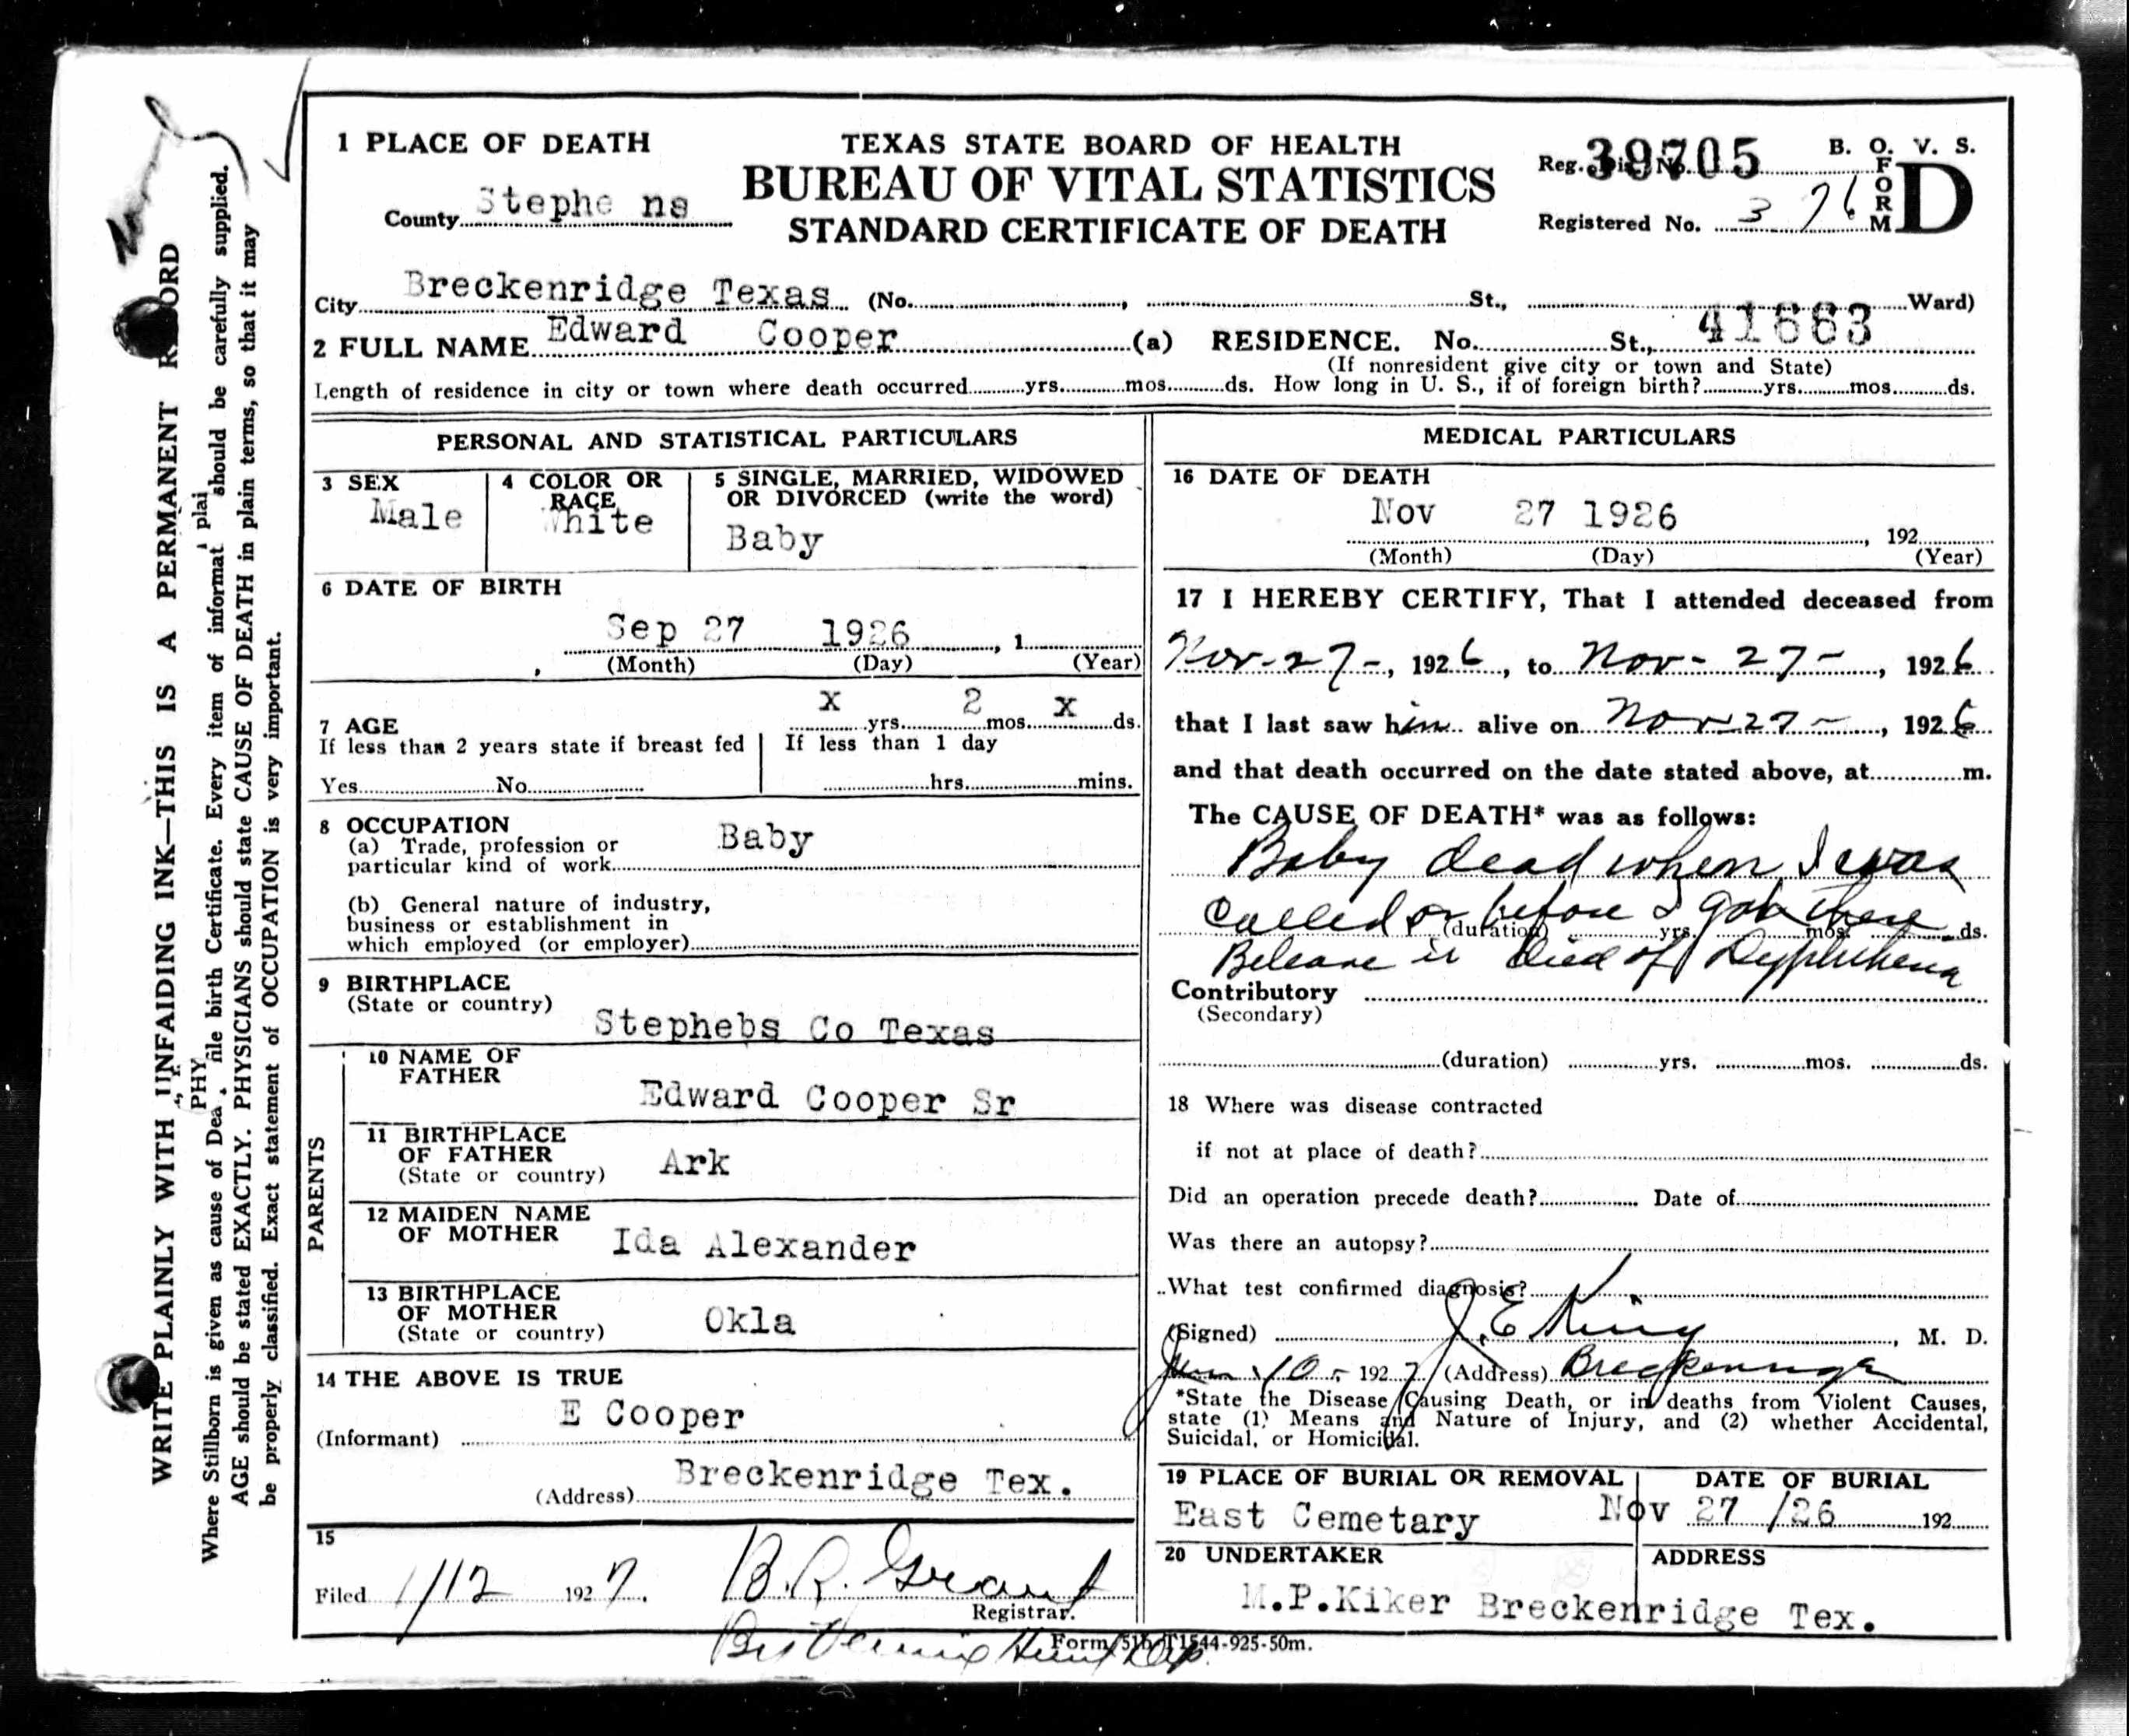 1 PLACE OF DEATH
TEXAS STATE BOARD OF HEALTH
BUREAU OF VITAL STATISTICS
STANDARD CERTIFICATE OF DEATH
Reg. Dis. No. 39705
B. O. V. S.
FORM D
County Stephens
Registered No. 376
City Breckenridge Texas (No. , St., Ward)
41663
2 FULL NAME Edward Cooper (a) RESIDENCE. No. St.,
(If nonresident give city or town and State)
Length of residence in city or town where death occurred yrs. mos. ds. How long in U. S., if of foreign birth? yrs. mos. ds.
PERSONAL AND STATISTICAL PARTICULARS
3 SEX
Male
4 COLOR OR RACE
White
5 SINGLE, MARRIED, WIDOWED
OR DIVORCED (write the word)
Baby
6 DATE OF BIRTH
Sep 27 1926 , 1
(Month) (Day) (Year)
7 AGE
x yrs. 2 mos. x ds.
If less than 2 years state if breast fed
Yes No
If less than 1 day
hrs. mins.
8 OCCUPATION
(a) Trade, profession or
particular kind of work Baby
(b) General nature of industry,
business or establishment in
which employed (or employer)
9 BIRTHPLACE
(State or country)
Stephebs Co Texas
PARENTS
10 NAME OF
FATHER
Edward Cooper Sr
11 BIRTHPLACE
OF FATHER
(State or country)
Ark
12 MAIDEN NAME
OF MOTHER
Ida Alexander
13 BIRTHPLACE
OF MOTHER
(State or country)
Okla
14 THE ABOVE IS TRUE
(Informant) E Cooper
(Address) Breckenridge Tex.
15
Filed 1/12 1927. B. R. Grant
Registrar.
MEDICAL PARTICULARS
16 DATE OF DEATH
Nov 27 1926 , 192
(Month) (Day) (Year)
17 I HEREBY CERTIFY, That I attended deceased from
Nov-27-, 1926, to Nov- 27-, 1926
that I last saw him alive on Nov 27-, 1926
and that death occurred on the date stated above, at m.
The CAUSE OF DEATH* was as follows:
Baby dead when I was
called or before I got there
(duration) yrs. mos. ds.
Beleave it Died of Dyphtheria
Contributory
(Secondary)
(duration) yrs. mos. ds.
18 Where was disease contracted
if not at place of death?
Did an operation precede death? Date of
Was there an autopsy?
What test confirmed diagnosis?
(Signed) J. E King , M. D.
Jan 10- 1927 (Address) Breckenridge
*State the Disease Causing Death, or in deaths from Violent Causes,
state (1) Means and Nature of Injury, and (2) whether Accidental,
Suicidal, or Homicidal.
19 PLACE OF BURIAL OR REMOVAL
East Cemetary
DATE OF BURIAL
Nov 27 /26 192
20 UNDERTAKER
ADDRESS
M.P.Kiker Breckenridge Tex.
Form 51b-T1544-925-50m.
WRITE PLAINLY WITH UNFAIDING INK—THIS IS A PERMANENT RECORD
Where Stillborn is given as cause of Dea file birth Certificate. Every item of informat should be carefully supplied.
PHY
plai
AGE should be stated EXACTLY. PHYSICIANS should state CAUSE OF DEATH in plain terms, so that it may
be properly classified. Exact statement of OCCUPATION is very important.